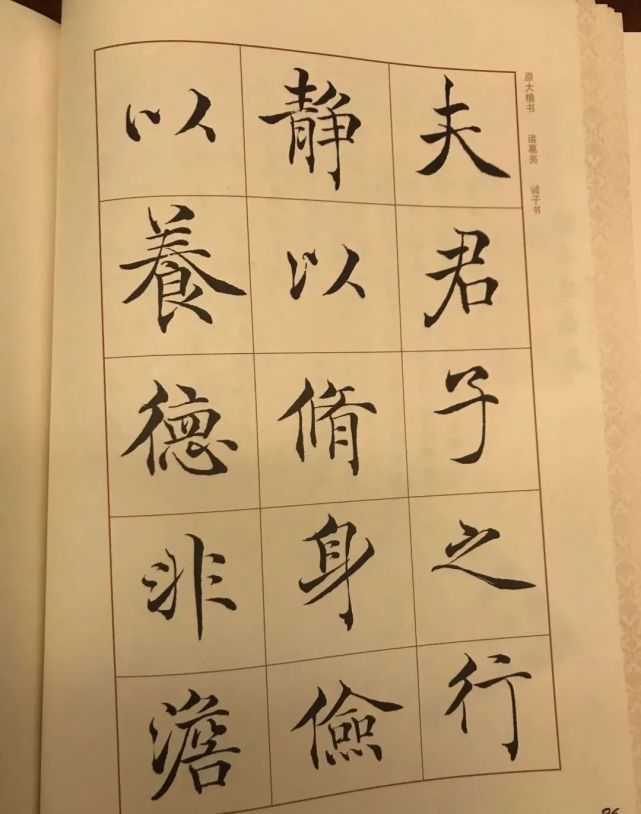 夫君子之行
静以脩身儉
以養德非澹
原大楷书 诸葛亮 诫子书
96